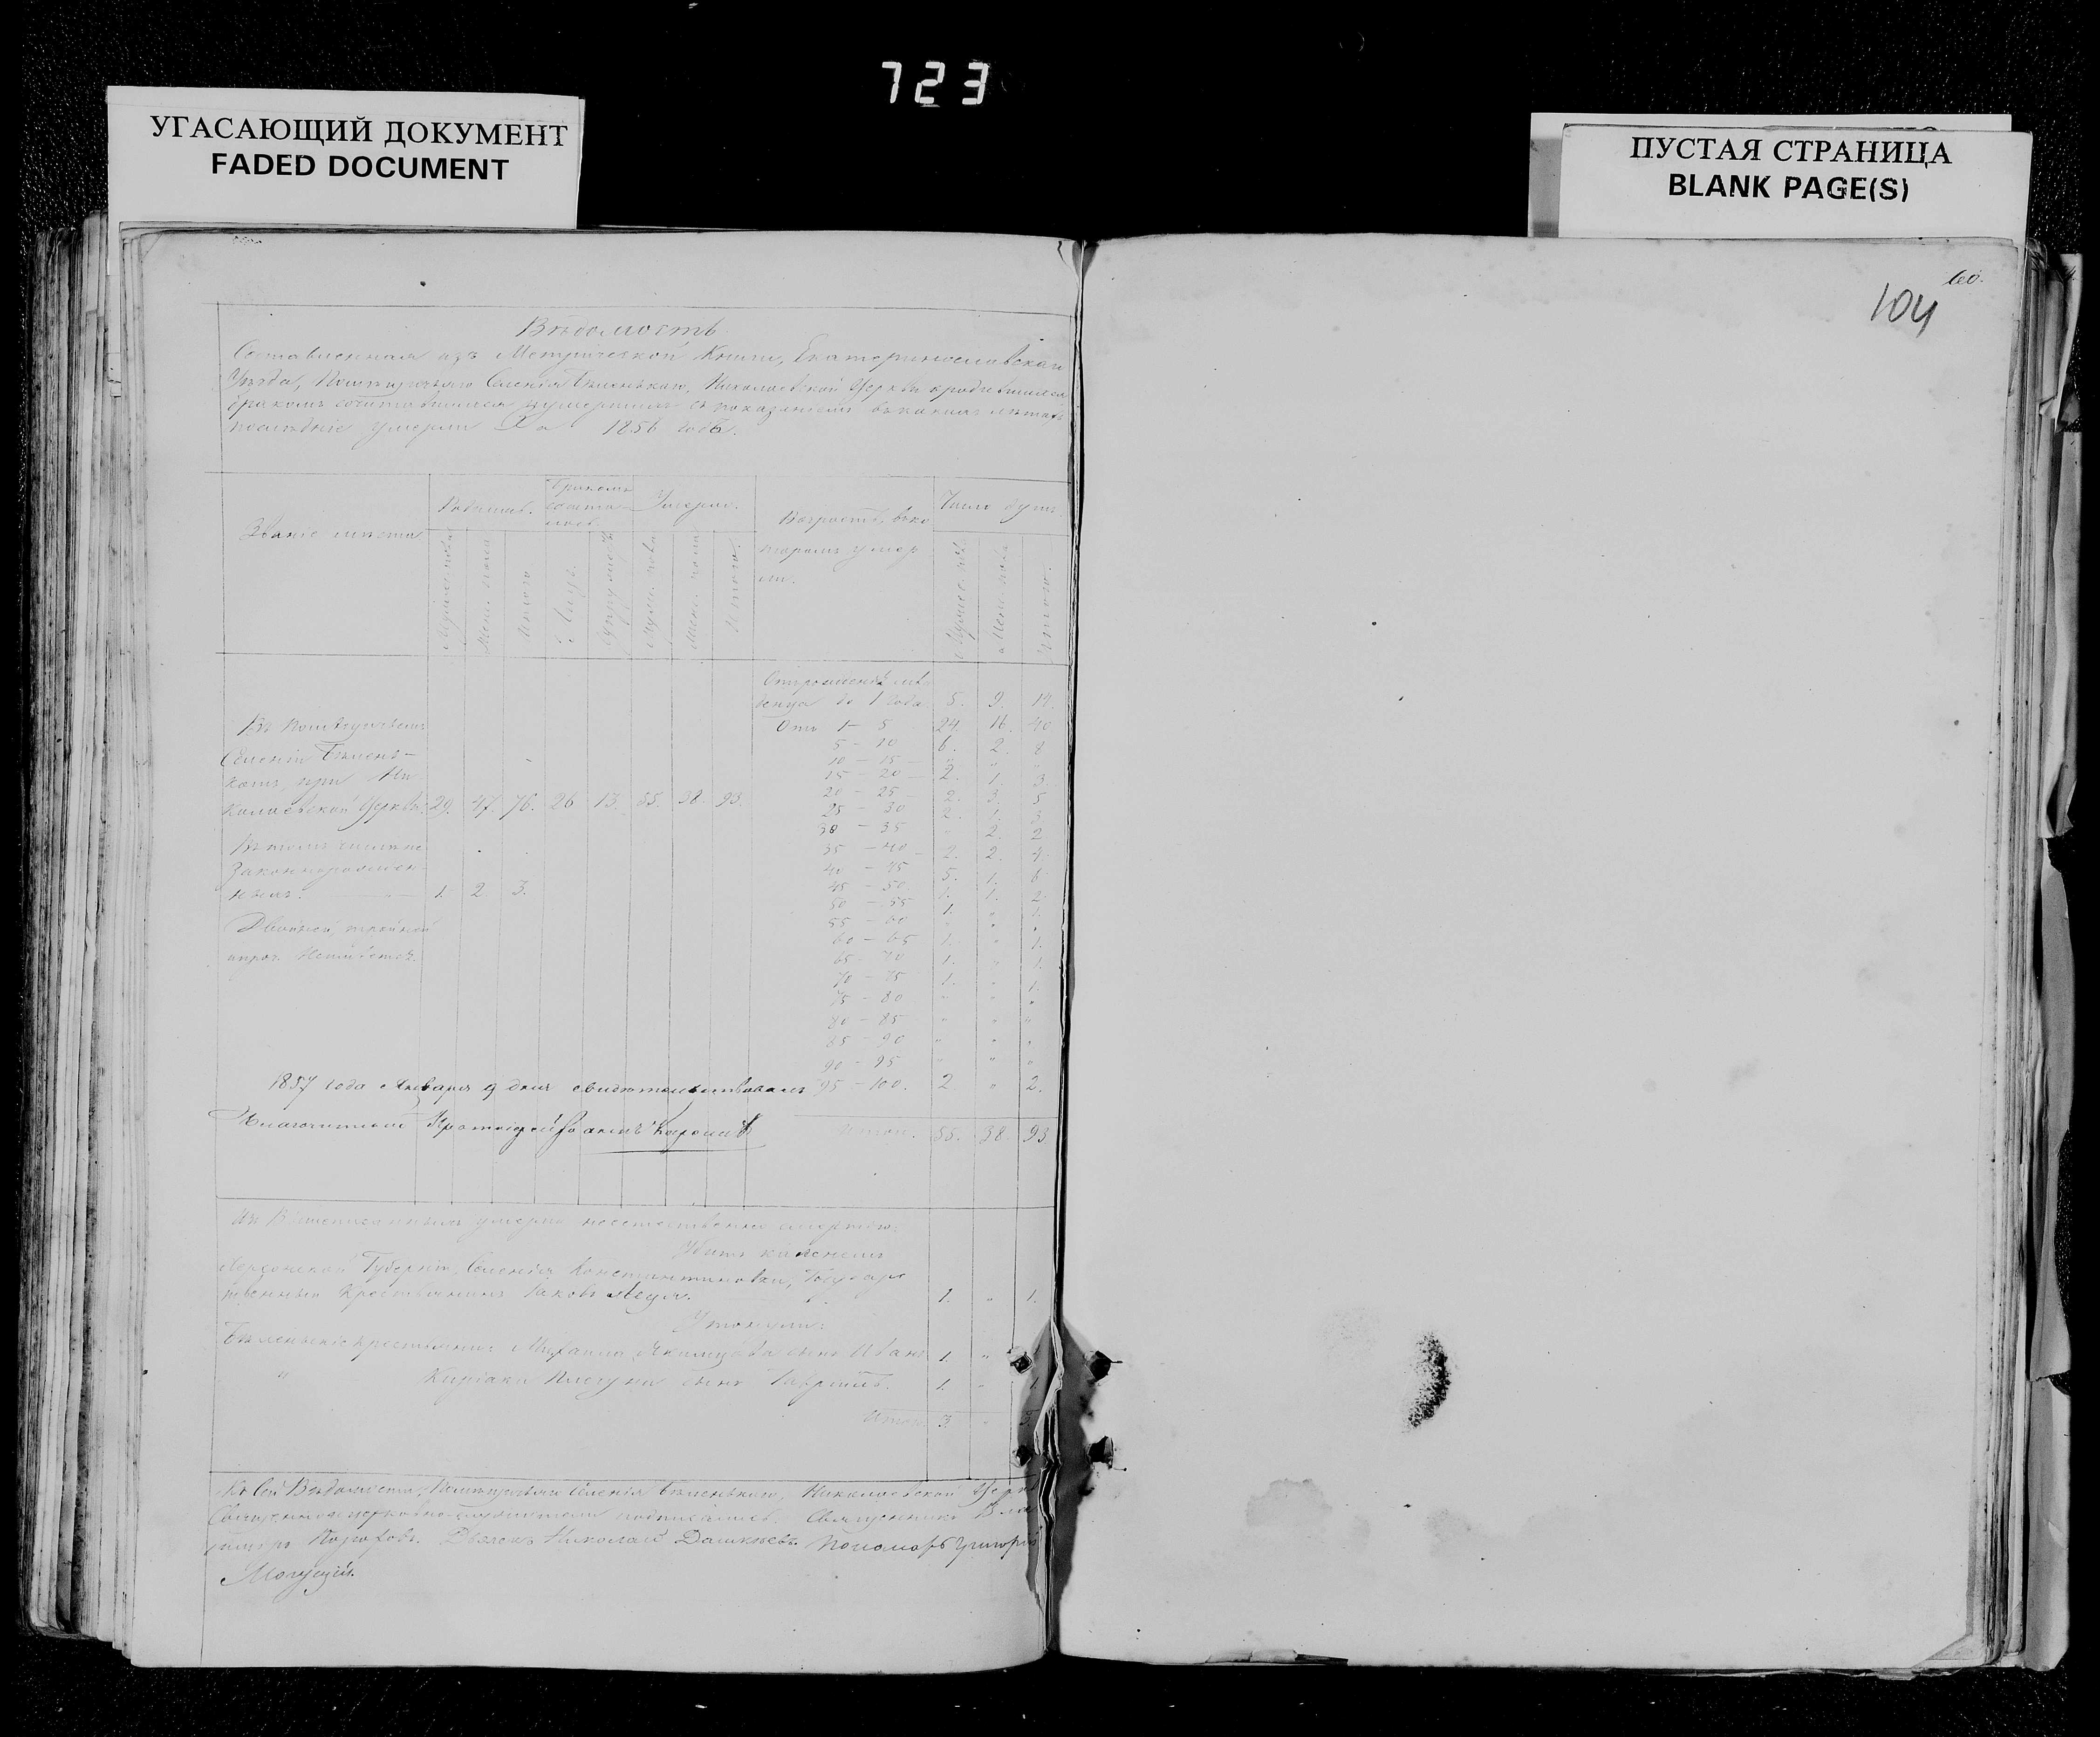 723
УГАСАЮЩИЙ ДОКУМЕНТ
FADED DOCUMENT
ПУСТАЯ СТРАНИЦА
BLANK PAGE(S)
60.
104
Вѣдомость
Составленная изъ Метрической Книги, Екатеринославскаго
Уѣзда, Селенія Бѣленькаго, Николаевской Церкви о родившихся
бракомъ сочетавшихся и умершихъ съ показаніемъ въ какихъ лѣтахъ
послѣдніе умерли За 1856 годъ.
Званіе мѣста
Родилось.
Бракомъ сочета-лось.
Умерло.
Возрастъ, въ ко
торомъ умер
ли.
Число душъ.
Мужес. пола
Жен. пола
Итого
Лицъ.
Супружествъ
Муж. пола
Жен. пола
Итого.
Мужес. пол.
Женс. пола
Итого.
Отъ рожденія мла
денца до 1 года 5. 9. 14.
Отъ 1 – 5 24. 16. 40
5 – 10 6. 2. 8
10 – 15 – " " "
15 – 20 – 2. 1. 3.
20 – 25 – 2. 3. 5
25 – 30 2. 1. 3
30 – 35 " 2. 2
35 – 40 – 2. 2. 4.
40 – 45 5. 1. 6
45 – 50 1. 1. 2.
50 – 55 1. " 1.
55 – 60 " " "
60 – 65 1. " 1.
65 – 70 1. " 1.
70 – 75 1. " 1.
75 – 80 " " "
80 – 85 " " "
85 – 90 " " "
90 – 95 " " "
95 – 100. 2 " 2.
Итого. 55. 38. 93
Въ
Селеніи Бѣлень-
комъ, при Ни
колаевской Церкви. 29. 47. 76. 26 13. 55. 38. 93.
Въ томъ числѣ не
законнорожден-
ныхъ. 1. 2 3.
Двойней, тройней
и проч. Неимѣется.
1857 года Января 9 дня свидѣтельствовалъ
Благочинный Протоіерей
Изъ Вышеписанныхъ умерло неестественною смертію:
Убитъ
Херсонской Губерніи, Селенія Константиновки, Государс
твенный Крестьянинъ Яковъ 1. " 1.
Утонули:
Бѣленьскіе крестьяне: Михаила сынъ Иванъ 1. "
" сынъ 1. " 1
Итого. 3. " 3.
Къ сей Вѣдомости, Селенія Бѣленькаго, Николаевской Церкв
Священно и церковно-служители подписались. Священникъ
Діаконъ Николай Дашкѣевъ. Пономарь Григорій